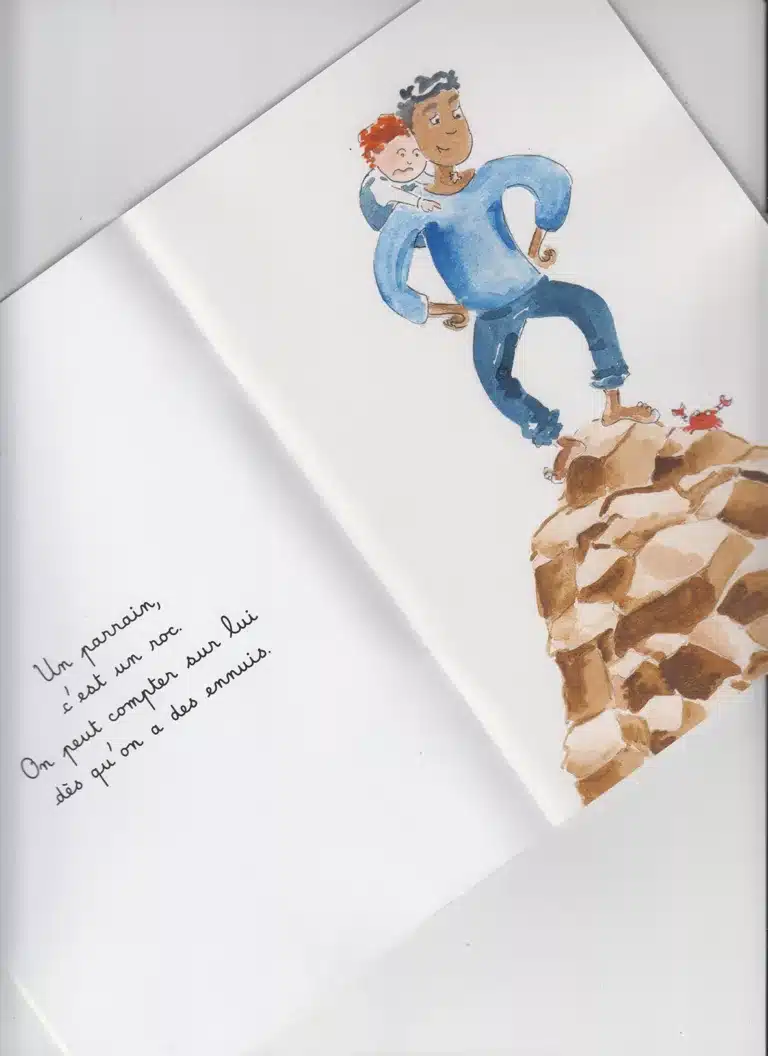 Un parrain,
c'est un roc.
On peut compter sur lui
dès qu'on a des ennuis.